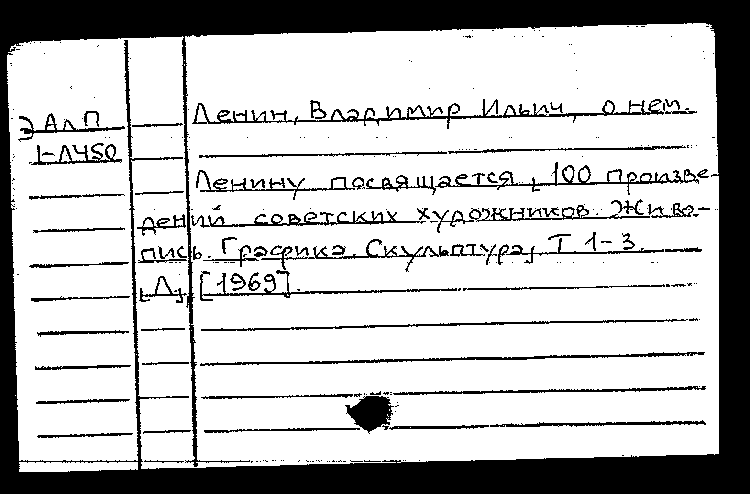 ЭАлП
1-Л450
Ленин, Владимир Ильич, о нем.
Ленину посвящается, [100 произве-
дений советских художников. Живо-
пись. Графика. Скульптура], Т 1-3.
[Л], [1969].